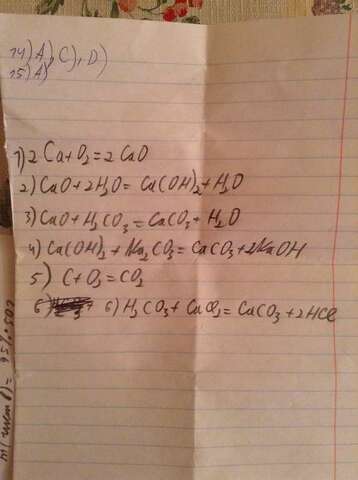 14) A), C), D)
15) A)
1) 2Ca+O₂=2CaO
2) CaO+2H₂O=Ca(OH)₂+H₂O
3) CaO+H₂CO₃=CaCO₃+H₂O
4) Ca(OH)₂+Na₂CO₃=CaCO₃+2NaOH
5) C+O₂=CO₂
6) 6) H₂CO₃+CaCl₂=CaCO₃+2HCl